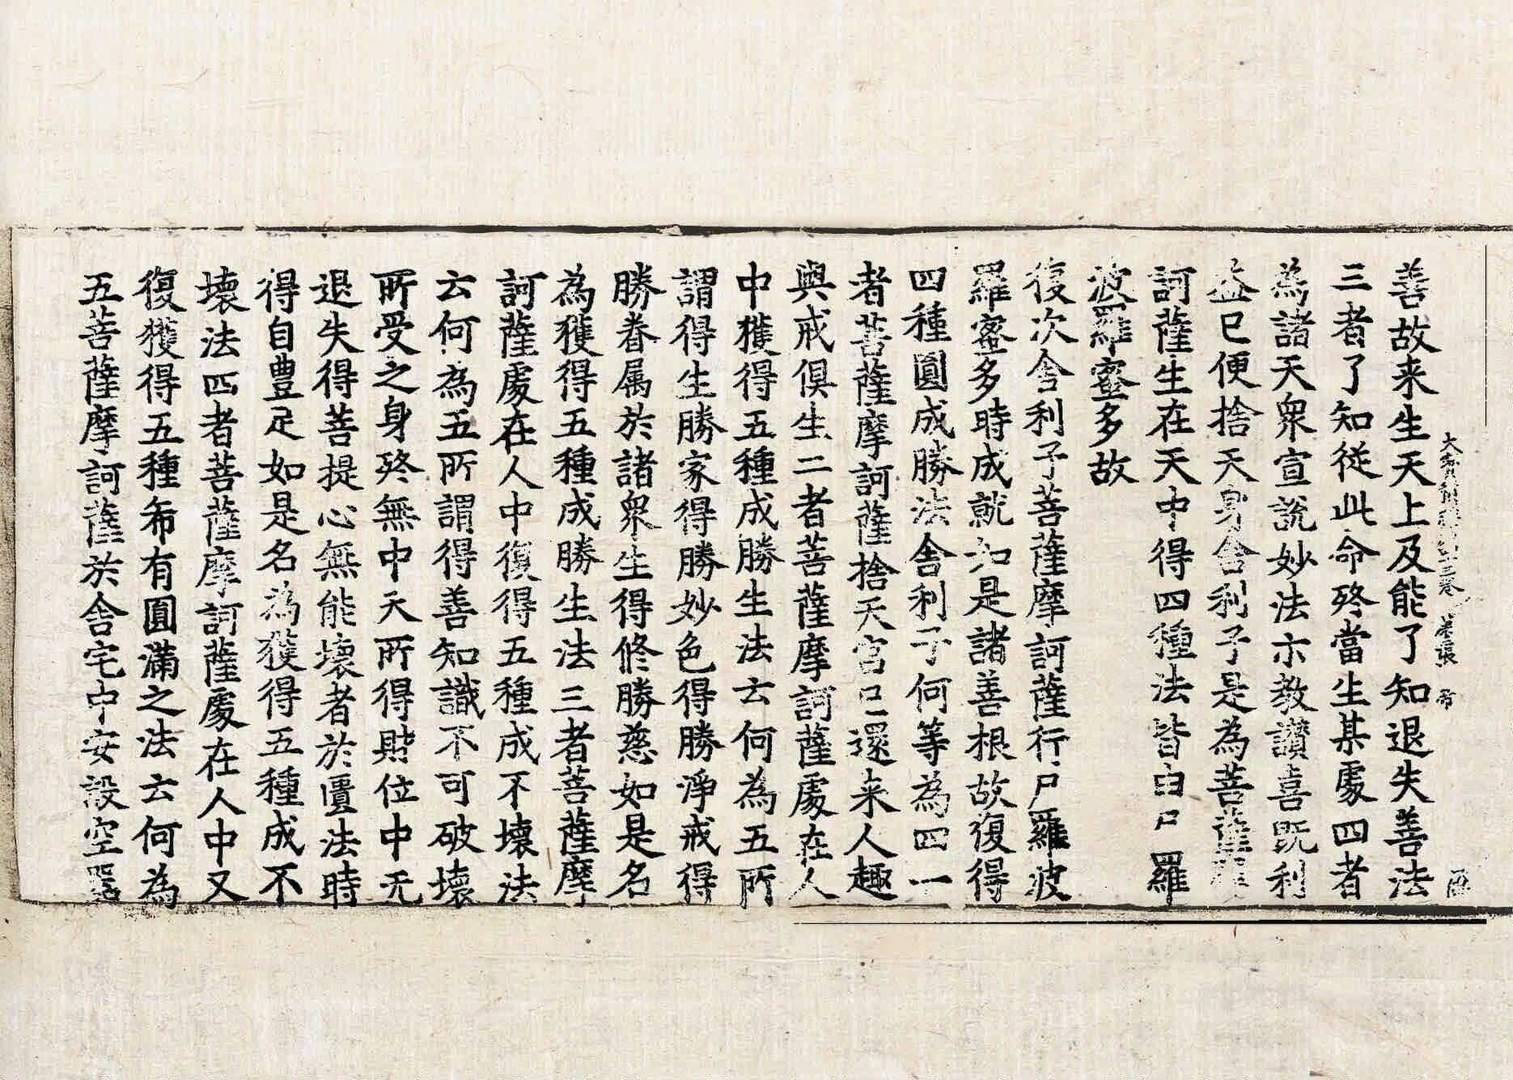 善故来生天上及能了知退失善法
三者了知從此命終當生某處四者
為諸天衆宣說妙法示教讚喜既利
益已便捨天身舍利子是為菩薩摩
訶薩生在天中得四種法皆由尸羅
波羅蜜多故
復次舍利子菩薩摩訶薩行尸羅波
羅蜜多時成就如是諸善根故復得
四種圓成勝法舍利子何等為四一
者菩薩摩訶薩捨天宮已還来人趣
與戒俱生二者菩薩摩訶薩處在人
中獲得五種成勝生法云何為五所
謂得生勝家得勝妙色得勝淨戒得
勝眷属於諸衆生得修勝慈如是名
為獲得五種成勝生法三者菩薩摩
訶薩處在人中復得五種成不壞法
云何為五所謂得善知識不可破壞
所受之身終無中夭所得財位中无
退失得菩提心無能壞者於匱法時
得自豊足如是名為獲得五種成不
壞法四者菩薩摩訶薩處在人中又
復獲得五種希有圓滿之法云何為
五菩薩摩訶薩於舍宅中安設空器